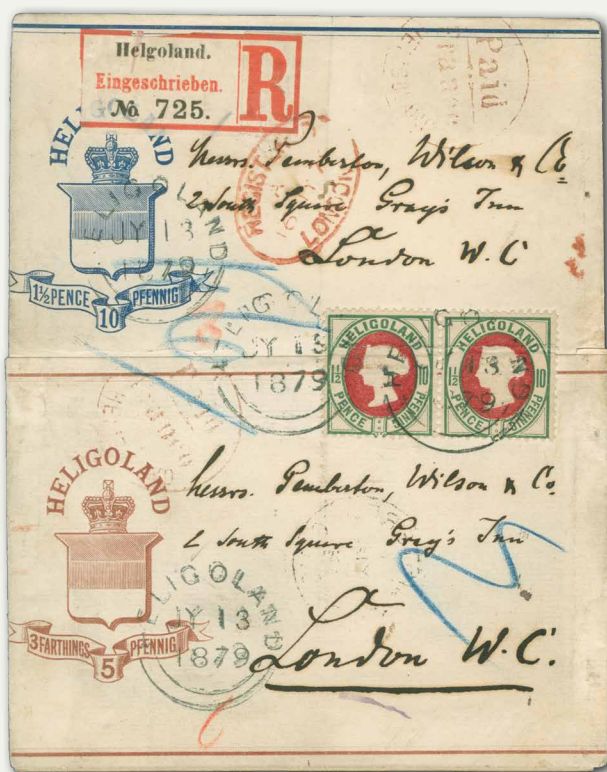 Helgoland.
Eingeschrieben.
No 725.
R
Paid
HELIGOLAND
1½ PENCE 10 PFENNIG
Messrs. Pemberton, Wilson & Co
2 South Square Gray's Inn
London W.C
REGIST
LONDON
HELIGOLAND
JY 13
1879
HELIGOLAND
JY 13
1879
HELIGOLAND
1½ PENCE
10 PFENNIG
HELIGOLAND
1½ PENCE
10 PFENNIG
HELIGOLAND
3 FARTHINGS 5 PFENNIG
Messrs. Pemberton, Wilson & Co.
2 South Square Gray's Inn
London W.C.
HELIGOLAND
JY 13
1879